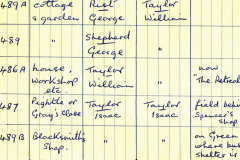 489A cottage & garden Rist George Taylor William
489 " Shepherd George "
486A house, workshop etc. Taylor William " now "The Retreat
487 Pightle or Gray's Close Taylor Isaac Taylor Isaac field behind Spencer's shop
489B Blacksmith's Shop. " " on Green where bus shelter is